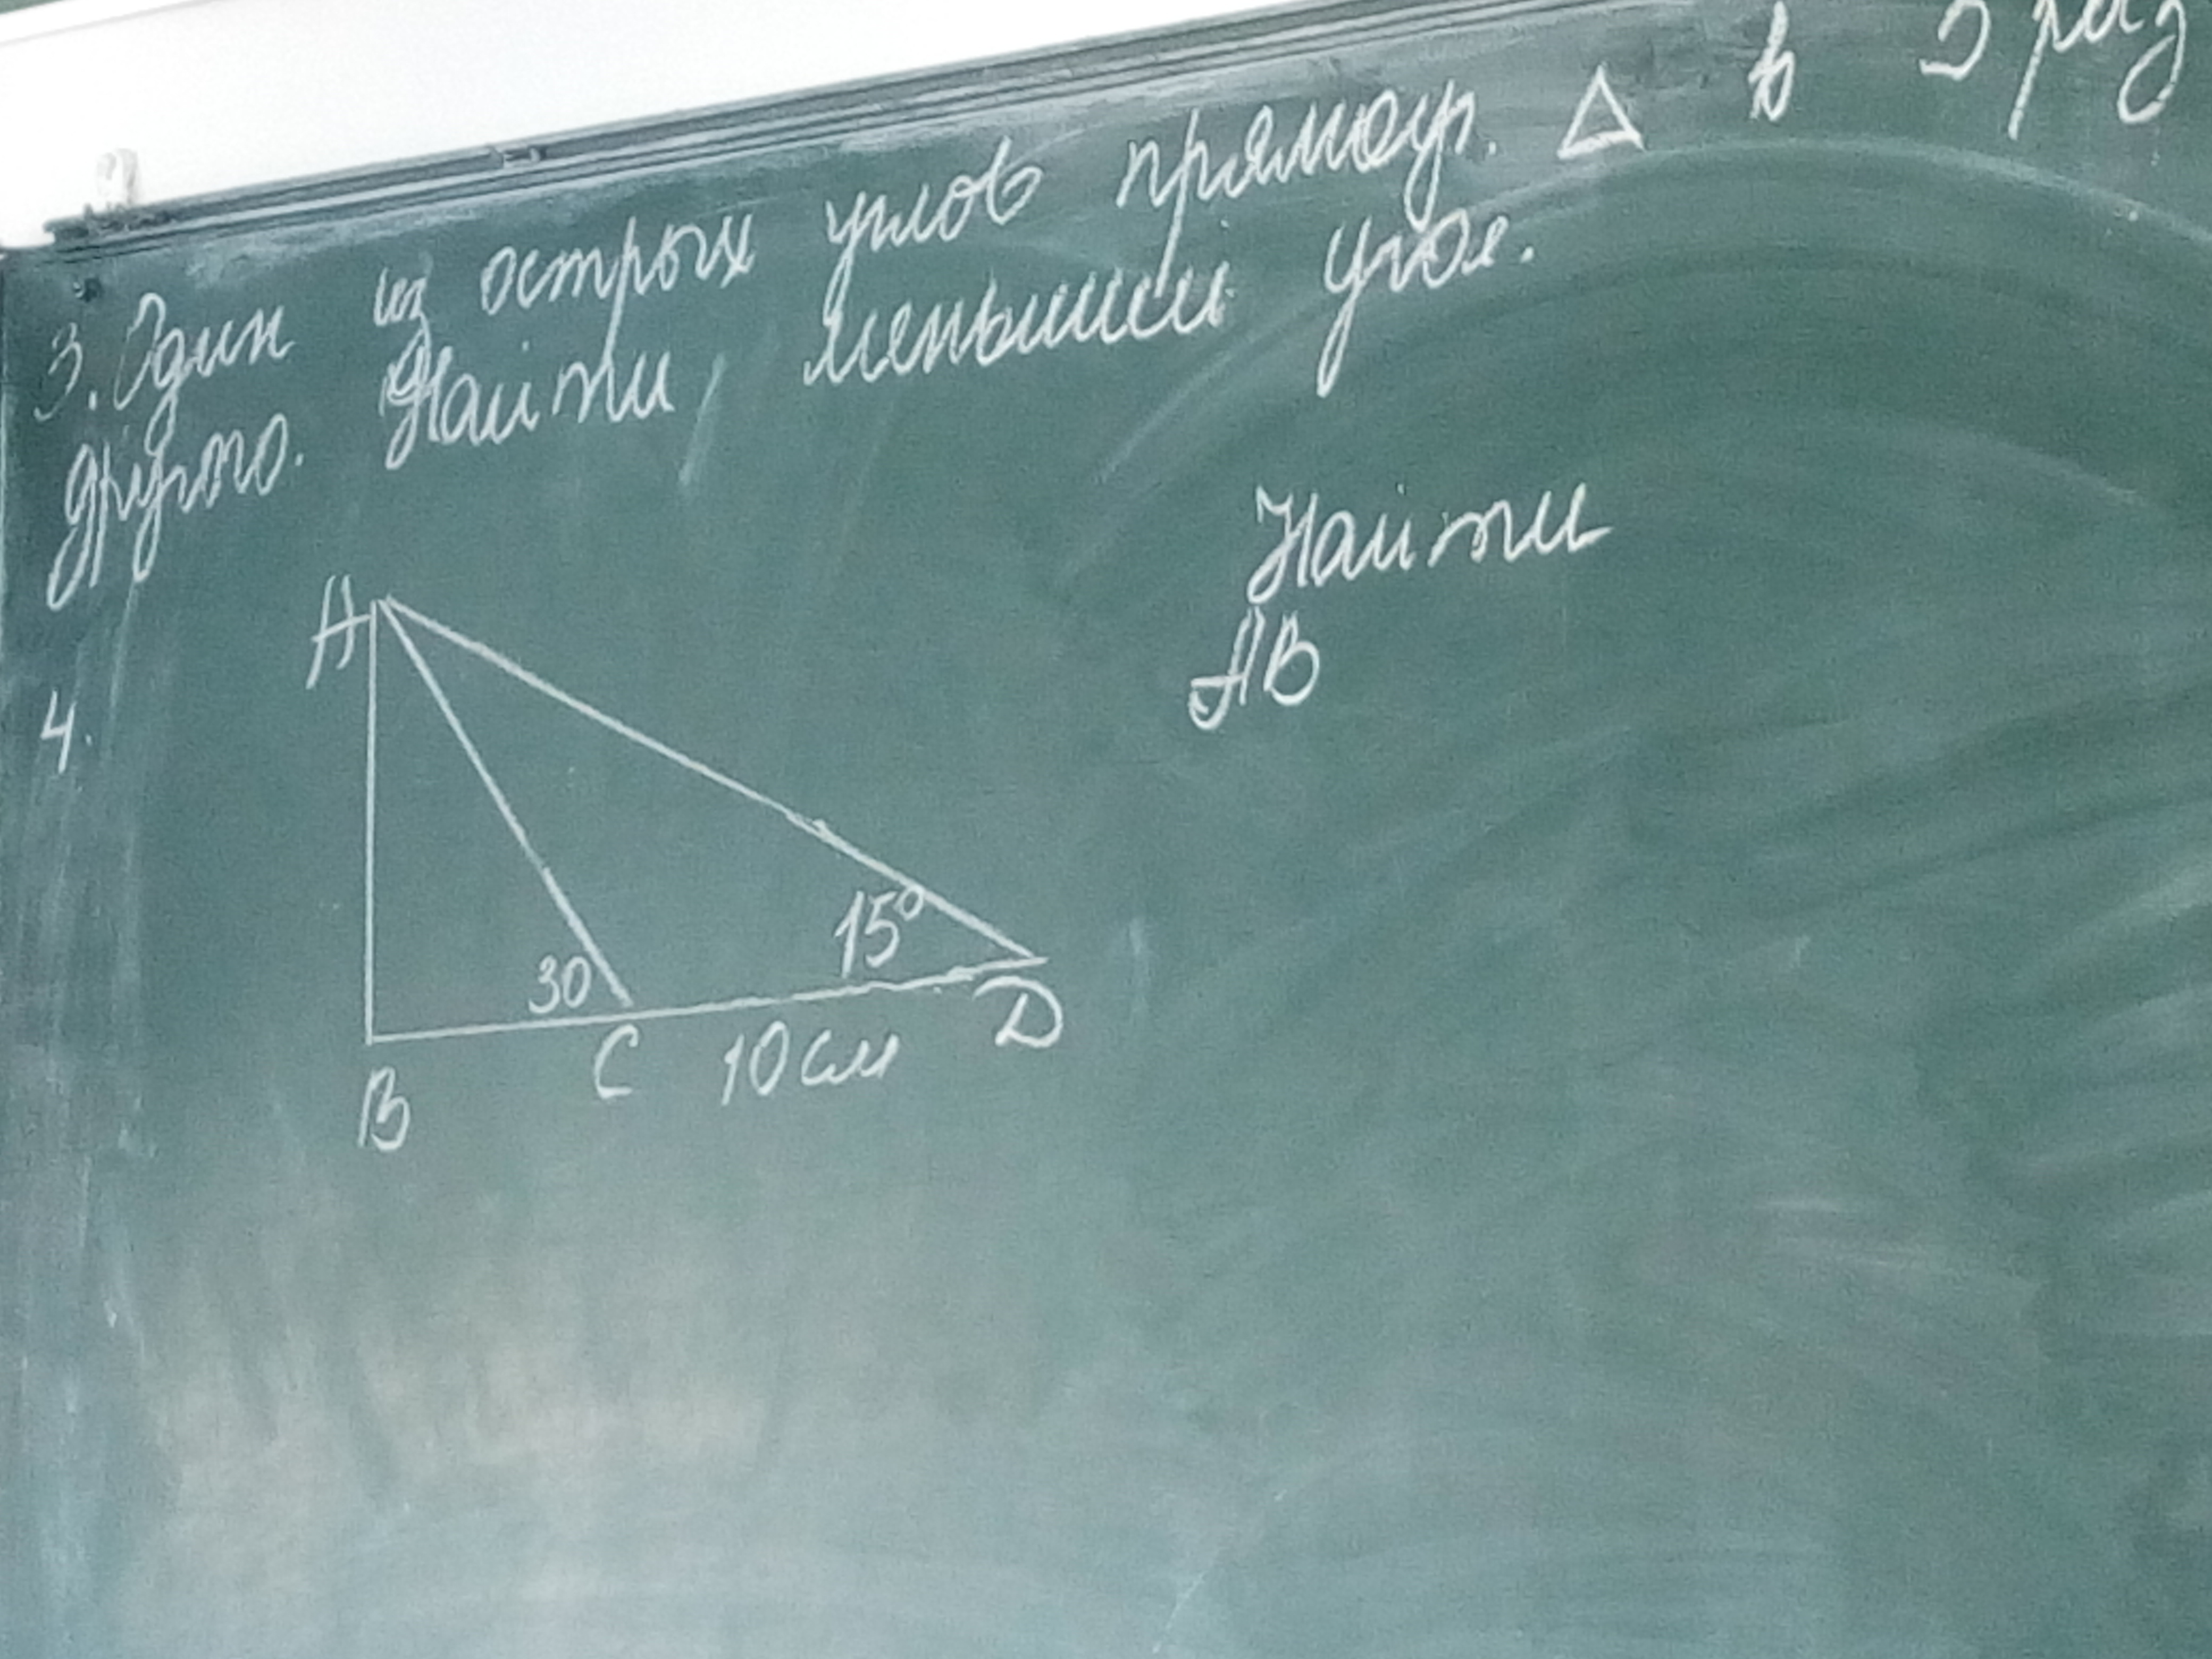 3. Один из острых углов прямоуг. △ в раз
другого. Найти меньший угол.
4.
Найти
AB
A
15°
30
B C 10 см D